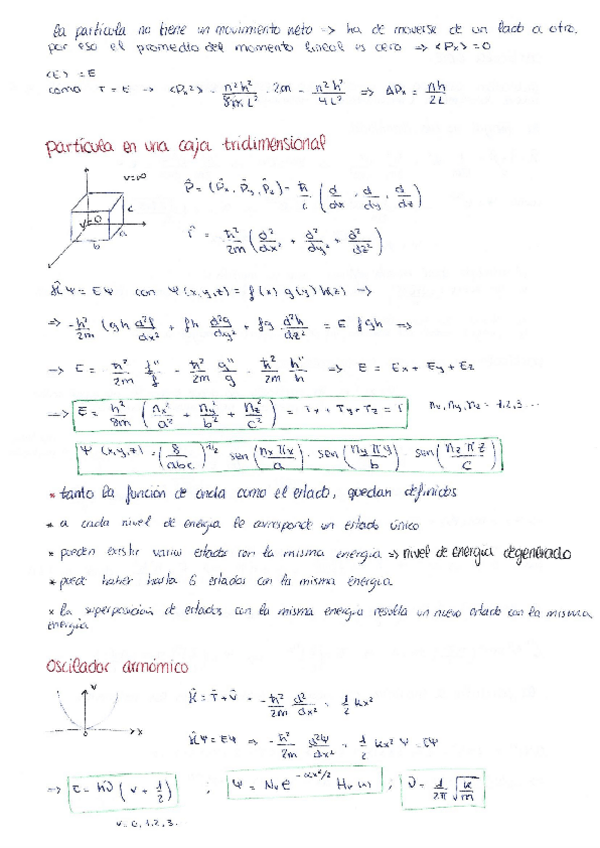 la partícula no tiene un movimiento neto -> ha de moverse de un lado a otro.
por eso el promedio del momento lineal es cero => <Px> = 0
<E> = E
como T = E -> <Px²> = n²h²/8mL² · 2m = n²h²/4L² => ΔPx = nh/2L
partícula en una caja tridimensional
V=∞
V=0
c
a
b
P̂ = (P̂x, P̂y, P̂z) = ħ/i (d/dx, d/dy, d/dz)
T̂ = ħ²/2m (d²/dx² + d²/dy² + d²/dz²)
ĤΨ = EΨ con Ψ(x,y,z) = f(x) g(y) h(z) ->
=> -ħ²/2m (gh d²f/dx² + fh d²g/dy² + fg d²h/dz² = E fgh =>
-> E = ħ²/2m f''/f - ħ²/2m g''/g - ħ²/2m h''/h => E = Ex + Ey + Ez
-> E = h²/8m (nx²/a² + ny²/b² + nz²/c²) = Tx + Ty + Tz = T nx, ny, nz = 1,2,3...
Ψ(x,y,z) = (8/abc)^1/2 sen(nxπx/a) · sen(nyπy/b) · sen(nzπz/c)
* tanto la función de onda como el estado, quedan definidos
* a cada nivel de energía le corresponde un estado único
* pueden existir varios estados con la misma energía => nivel de energía degenerado
* puede haber hasta 6 estados con la misma energía
* la superposición de estados con la misma energía resulta un nuevo estado con la misma
energía
oscilador armómico
V
x
Ĥ = T̂ + V̂ = -ħ²/2m d²/dx² + 1/2 kx²
ĤΨ = EΨ => -ħ²/2m d²Ψ/dx² + 1/2 kx² Ψ = EΨ
=> E = hν (v + 1/2) ; Ψ = Nv e^-αx²/2 Hv(x) ; ν = 1/2π √k/m
v = 0,1,2,3..